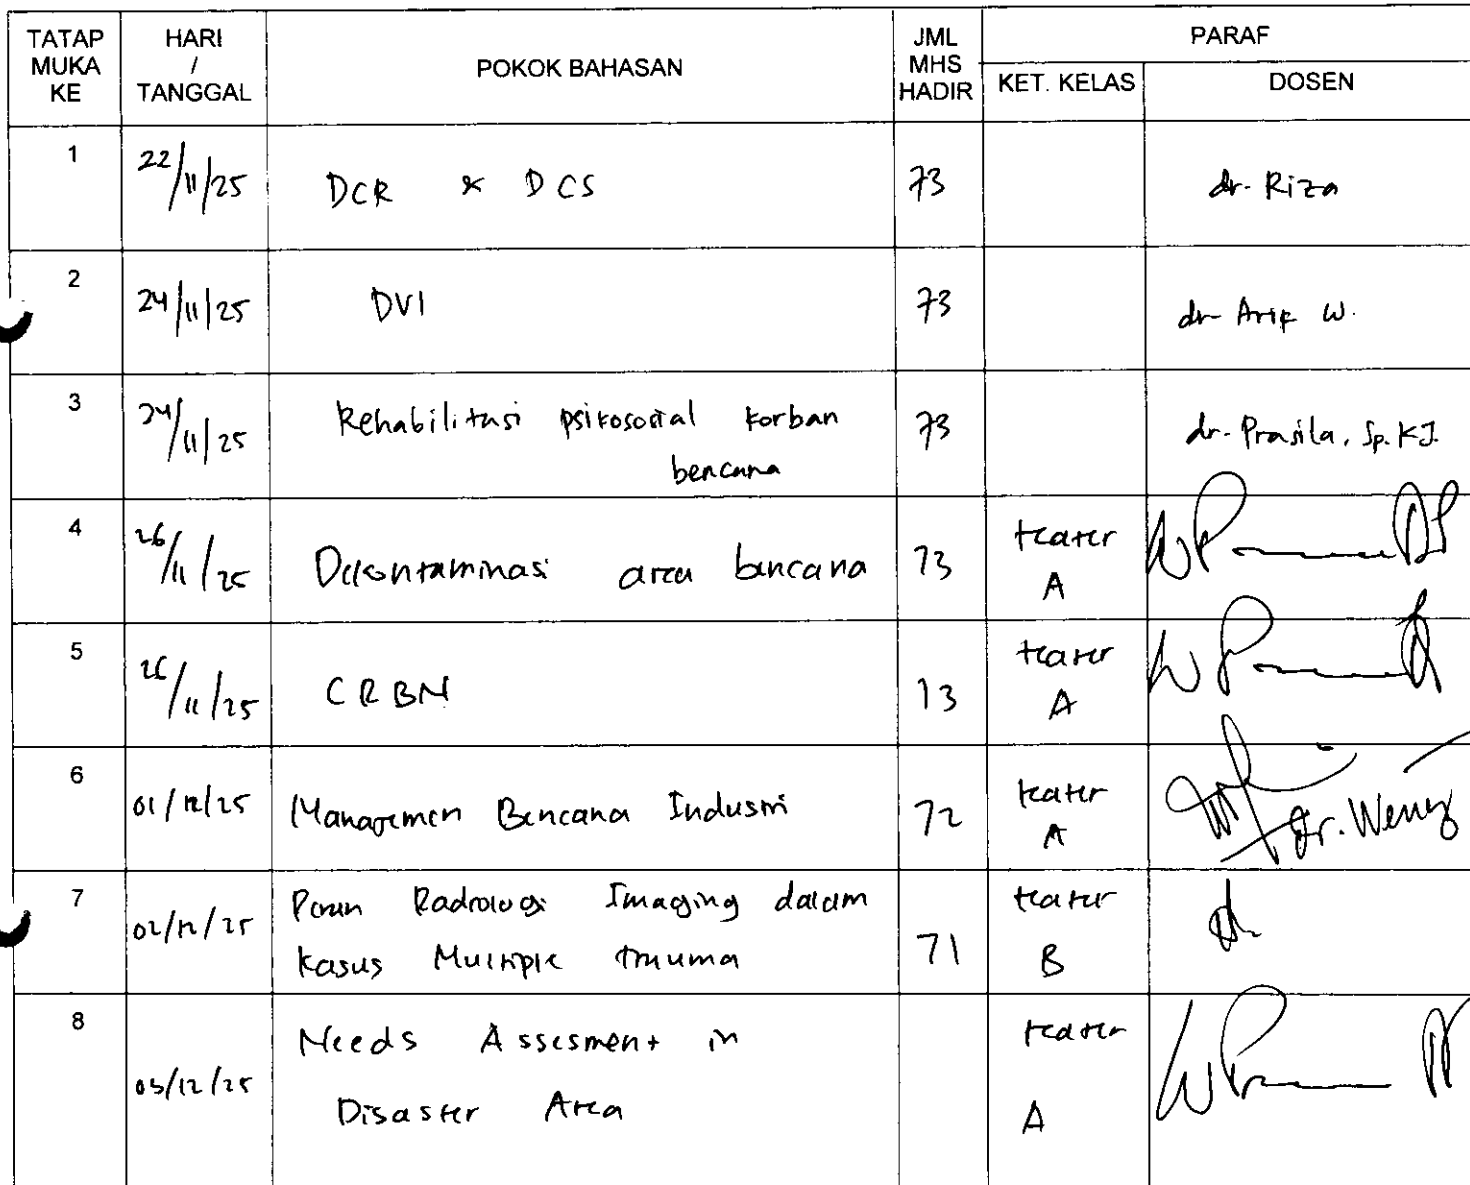 TATAP MUKA KE HARI / TANGGAL POKOK BAHASAN JML MHS HADIR PARAF
KET. KELAS DOSEN
1 22/11/25 DCR & DCS 73 dr. Riza
2 24/11/25 DVI 73 dr Arif W.
3 24/11/25 Rehabilitasi psikososial korban 73 dr. Prasila, Sp. KJ.
bencana
4 26/11/25 Dekontaminasi area bencana 73 teater
A
5 26/11/25 CRBN 13 teater
A
6 01/12/25 Managemen Bencana Industri 72 teater dr. Weny
A
7 02/12/25 Peran Radiologi Imaging dalam teater
kasus Multiple trauma 71 B
8 03/12/25 Needs Assesment in teater
Disaster Area A